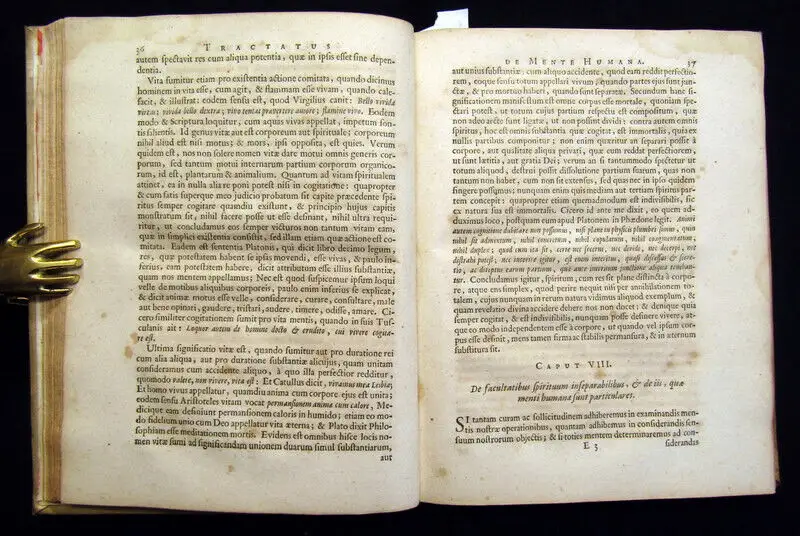 36 TRACTATUS
autem spectavit res cum aliqua potentia, quæ in ipsis esset sine depen-
dentia.
Vita sumitur etiam pro existentia actione comitata, quando dicimus
hominem in vita esse, cum agit, & flammam esse vivam, quando cale-
facit, & illustrat: eodem sensu est, quod Virgilius canit: Bello vivida
virtus; vivida bello dextra; vivo tentat prævertere amore; flumine vivo. Eodem
modo & Scriptura loquitur, cum aquas vivas appellat, impetum fon-
tis salientis. Id genus vitæ aut est corporeum aut spirituale; corporeum
nihil aliud est nisi motus; & mors, ipsi opposita, est quies. Verum
quidem est, nos non solere nomen vitæ dare motui omnis generis cor-
porum, sed tantum motui internarum partium corporum organico-
rum, id est, plantarum & animalium. Quantum ad vitam spiritualem
attinet, ea in nulla alia re poni potest nisi in cogitatione: quapropter
& cum satis superque meo judicio probatum sit capite præcedente spi-
ritus semper cogitare quandiu existunt, & principio hujus capitis
monstratum sit, nihil facere posse ut esse desinant, nihil ultra requi-
ritur, ut concludamus eos semper victuros non tantum vitam eam,
quæ in simplici existentia consistit, sed illam etiam quæ actione est co-
mitata. Eadem est sententia Platonis, qui dicit libro decimo legum,
res, quæ potestatem habent se ipsas movendi, esse vivas, & paulo in-
ferius, eam potestatem habere, dicit attributum esse illius substantiæ,
quam nos mentem appellamus; Nec est quod suspicemur ipsum loqui
velle de motibus aliquibus corporeis, paulo enim inferius se explicat,
& dicit animæ motus esse velle, considerare, curare, consultare, male
aut bene opinari, gaudere, tristari, audere, timere, odisse, amare. Ci-
cero similiter cogitationem sumit pro vita mentis, quando in suis Tus-
culanis ait: Loquor autem de homine docto & erudito, cui vivere cogita-
re est.
Ultima significatio vitæ est, quando sumitur aut pro duratione rei
cum alia aliqua, aut pro duratione substantiæ alicujus, quam unitam
consideramus cum accidente aliquo, à quo illa perfectior redditur,
quomodo valere, non vivere, vita est: Et Catullus dicit, vivamus mea Lesbia;
Et homo vivus appellatur, quamdiu anima cum corpore ejus est unita;
eodem sensu Aristoteles vitam vocat permansionem animæ cum calore, Me-
dicique eam definiunt permansionem caloris in humido; etiam eo mo-
do fidelium unio cum Deo appellatur vita æterna; & Plato dixit Philo-
sophiam esse meditationem mortis. Evidens est omnibus hisce locis no-
men vitæ sumi ad significandam unionem duarum simul substantiarum,
aut
DE MENTE HUMANA. 37
aut unius substantiæ, cum aliquo accidente, quod eam reddit perfectio-
rem, eoque sensu totum appellari vivum, quando partes ejus sunt junc-
tæ, & pro mortuo haberi, quando sunt separatæ. Secundum hanc si-
gnificationem manifestum est omne corpus esse mortale, quoniam spe-
ctari potest, ut totum cujus partium respectu est compositum, quæ
non adeo arcte sunt ligatæ, ut non possint dividi: contra autem omnis
spiritus, hoc est omnis substantia quæ cogitat, est immortalis, quia ex
nullis partibus componitur; non enim quæritur an separari possit à
corpore, aut qualitate aliqua privari, quæ eum reddat perfectiorem,
ut sunt lætitia, aut gratia Dei; verum an si tantummodo spectetur ut
totum aliquod, destrui possit dissolutione partium suarum, quas non
tantum non habet, cum non sit extensus, sed quas nec in ipso quidem
fingere possumus; nunquam enim quis mediam aut tertiam spiritus par-
tem concepit: quapropter etiam quemadmodum est indivisibilis, sic
ex natura sua est immortalis. Cicero id ante me dixit, eo quem ad-
duximus loco, postquam eum apud Platonem in Phædone legit. Animi
autem cognitione dubitare non possumus, nisi plane in physicis plumbei sumus, quin
nihil sit admixtum, nihil concretum, nihil copulatum, nihil coagmentatum,
nihil duplex: quod cum ita sit, certe nec secerni, nec dividi, nec decerpi, nec
distrahi potest, nec interire igitur, est enim interitus, quasi discessus & secre-
tio, ac direptus earum partium, quæ ante interitum junctione aliqua teneban-
tur. Concludamus igitur, spiritum, cum res sit plane distincta à corpo-
re, atque ens simplex, quod perire nequit nisi per annihilationem to-
talem, cujus nunquam in rerum natura vidimus aliquod exemplum, &
quam revelatio divina accidere debere nos non docet; & denique quia
semper cogitat, & est indivisibilis, nunquam posse desinere vivere, at-
que eo modo independentem esse à corpore, ut quando vel ipsum cor-
pus esse desinit, mens tamen firma ac stabilis permansura, & in æternum
substitura sit.
CAPUT VIII.
De facultatibus spirituum inseparabilibus, & de iis, quæ
menti humanæ sunt particulares.
SI tantam curam ac sollicitudinem adhiberemus in examinandis men-
tis nostræ operationibus, quantam adhibemus in considerandis sen-
suum nostrorum objectis; & si toties mentem determinaremus ad con-
E 3 siderandas